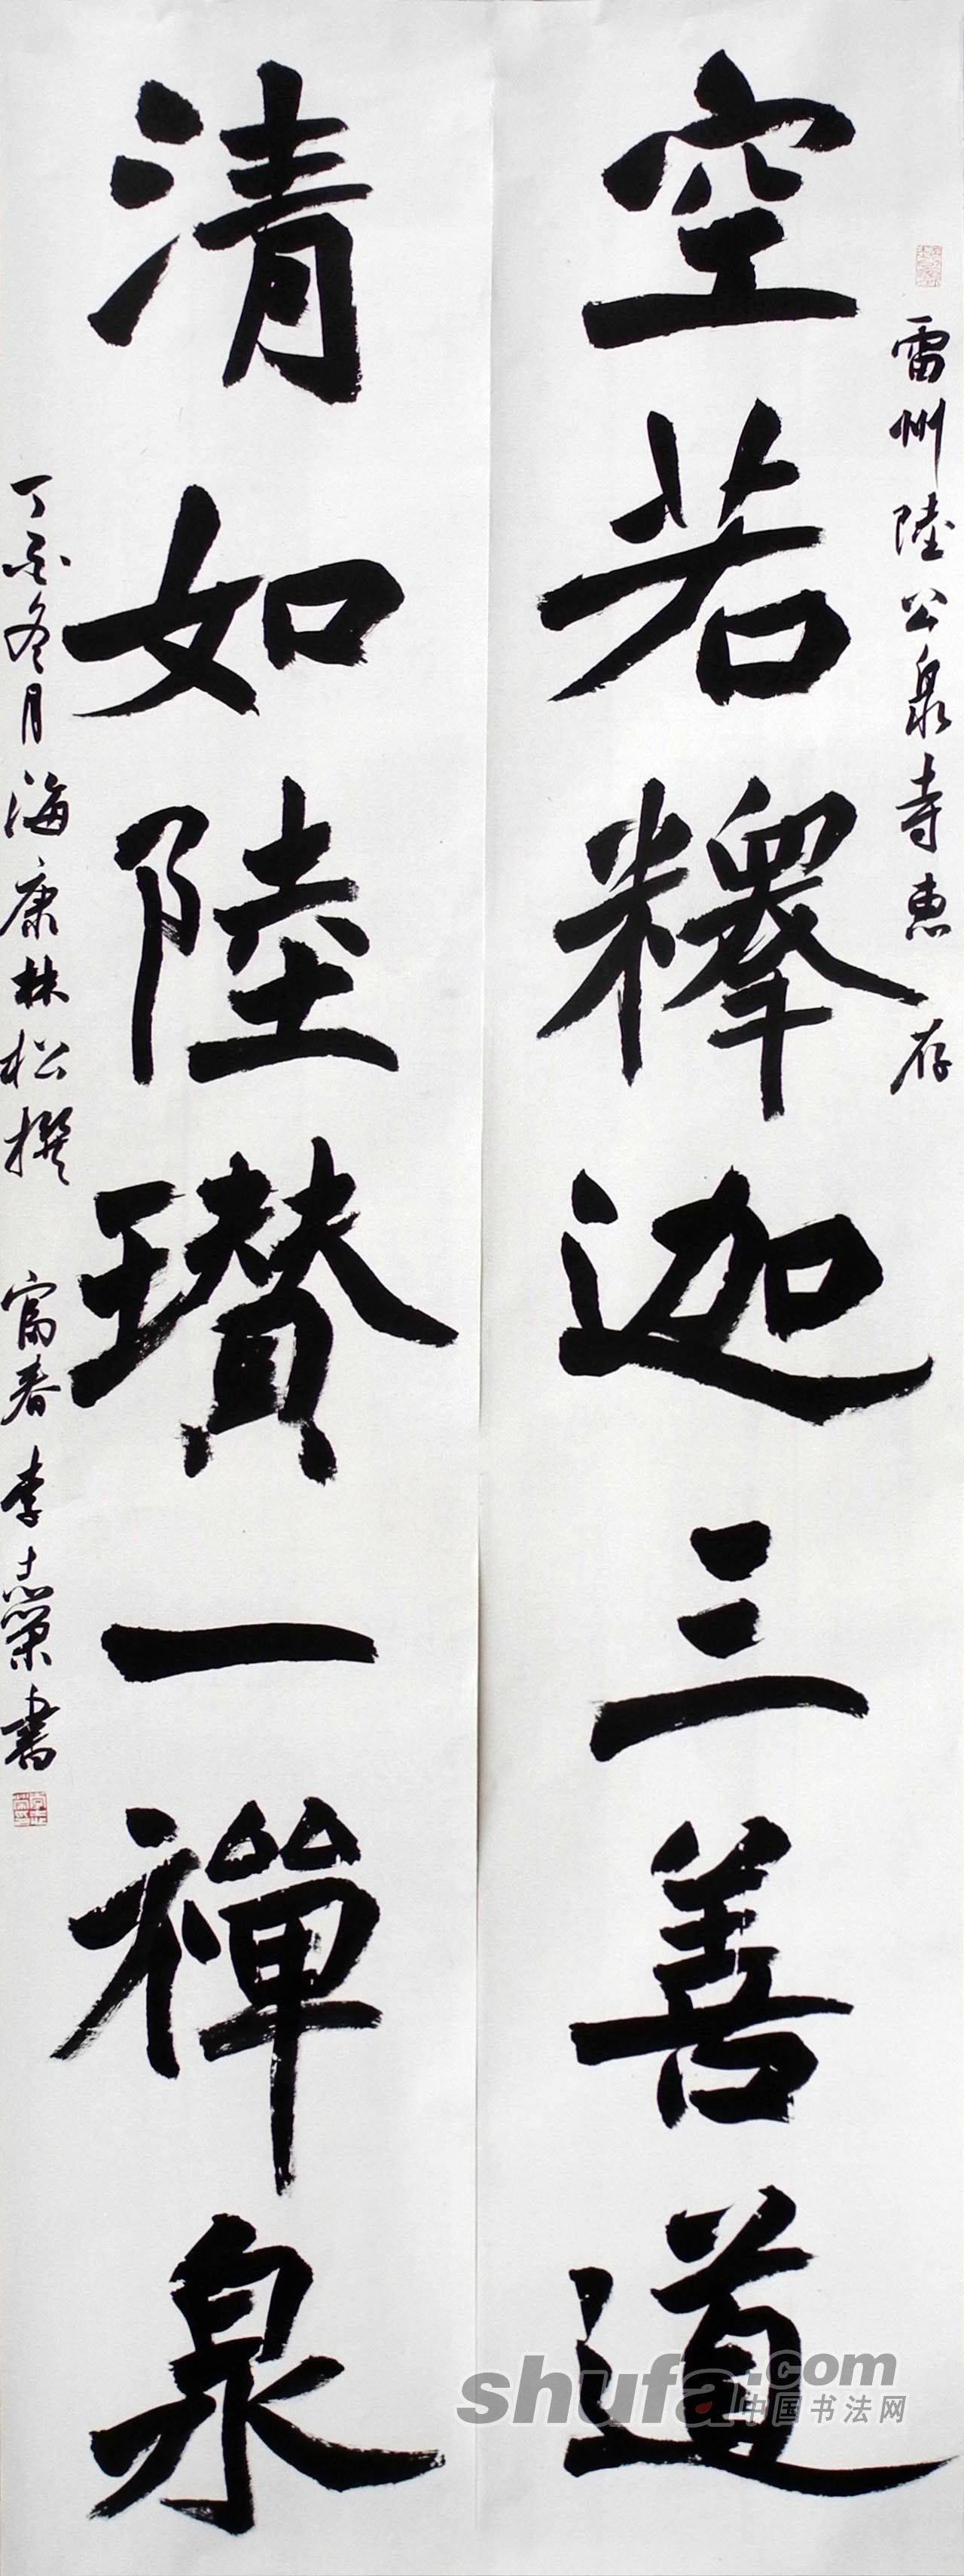 雷州陸公泉寺惠存
空若釋迦三善道
清如陸瓚一禪泉
丁酉冬月海康林松撰 富春李志榮書
shufa.com
中国书法网